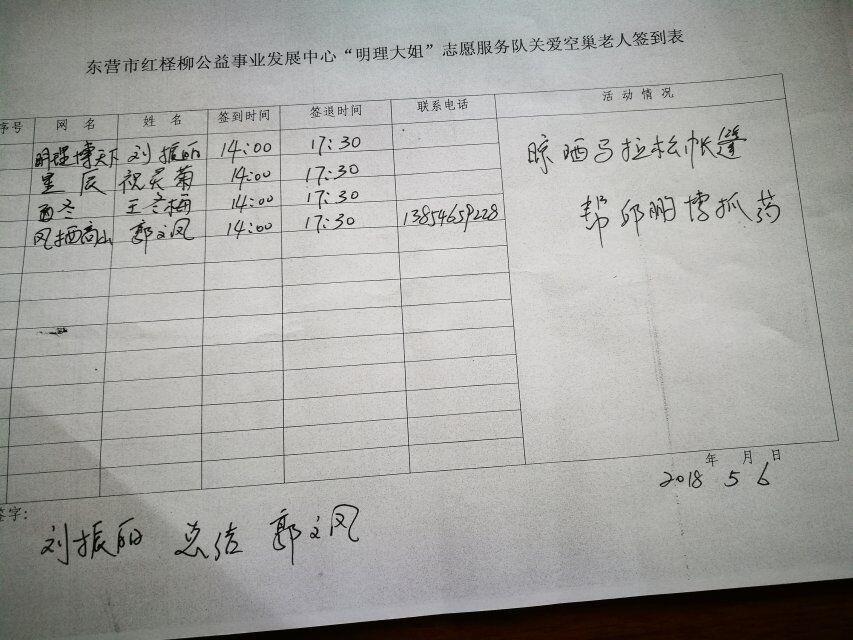 东营市红柽柳公益事业发展中心“明理大姐”志愿服务队关爱空巢老人签到表
序号 网名 姓名 签到时间 签退时间 联系电话 活动情况
明理博天下 刘振丽 14:00 17:30
星辰 祝灵菊 14:00 17:30
西冬 王冬梅 14:00 17:30
风栖高山 郭文凤 14:00 17:30 13854659228
晾晒马拉松帐篷
帮邱鹏博抓药
年 月 日
2018 5 6
签字:
刘振丽 总结 郭文凤